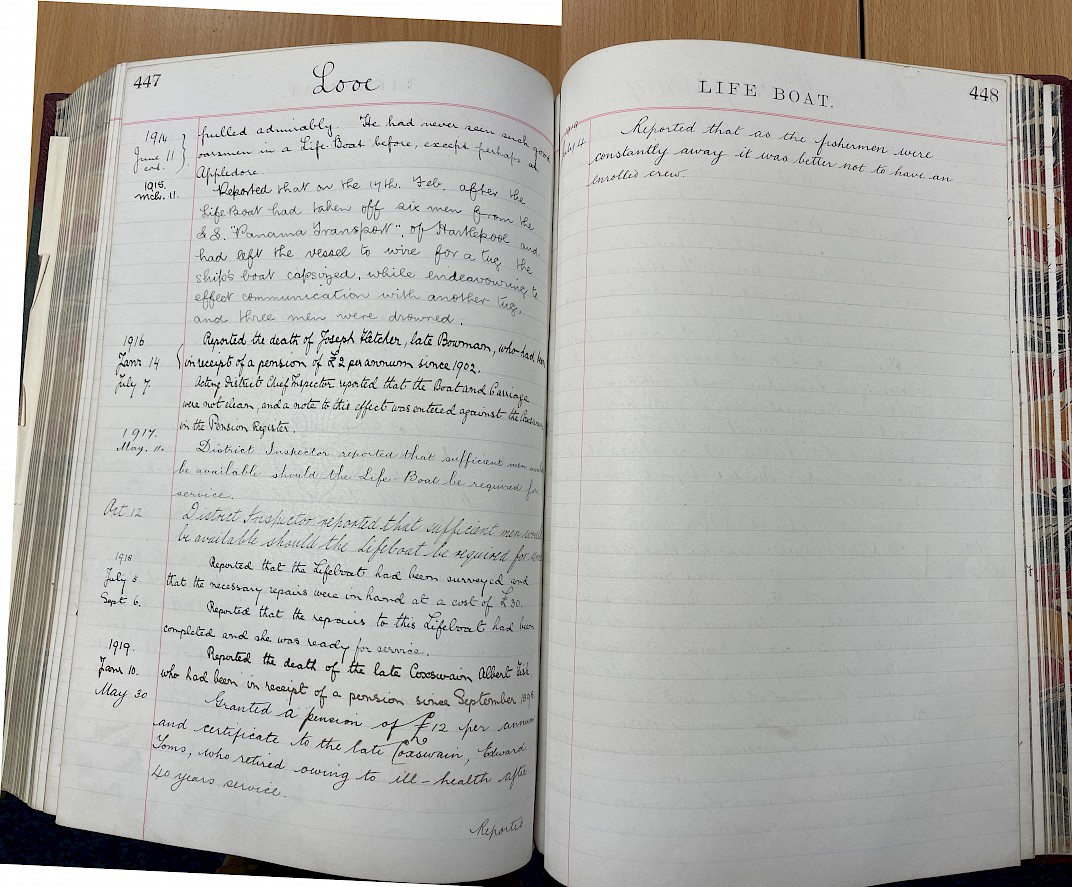 447
Looe
1914
June 11
cont.
pulled admirably. He had never seen such good
oarsmen in a Life-Boat before, except perhaps at
Appledore
1915.
Mch. 11.
Reported that on the 17th. Feb. after the
Life Boat had taken off six men from the
S.S. "Panama Transport", of Hartlepool and
had left the vessel to wire for a tug, the
ship's boat capsized, while endeavouring to
effect communication with another tug,
and three men were drowned.
1916
Janr 14
Reported the death of Joseph Hatcher, late Bowman, who had been
in receipt of a pension of £2 per annum since 1902.
July 7.
Acting District Chief Inspector reported that the Boat and Carriage
were not clean, and a note to this effect was entered against the Coxswain
in the Pension Register.
1917.
May. 11.
District Inspector reported that sufficient men would
be available should the Life-Boat be required for
service.
Oct 12
District Inspector reported that sufficient men would
be available should the Lifeboat be required for service
1918
July 5.
Reported that the Lifeboat had been surveyed and
that the necessary repairs were in hand at a cost of £30.
Sept 6.
Reported that the repairs to this Lifeboat had been
completed and she was ready for service.
1919.
Janr 10.
Reported the death of the late Coxswain Albert
who had been in receipt of a pension since September
May 30
Granted a pension of £12 per annum
and certificate to the late Coxswain, Edward
Toms, who retired owing to ill-health after
40 years service.
Reported
LIFE BOAT.
448
Reported that as the fishermen were
constantly away it was better not to have an
enrolled crew.